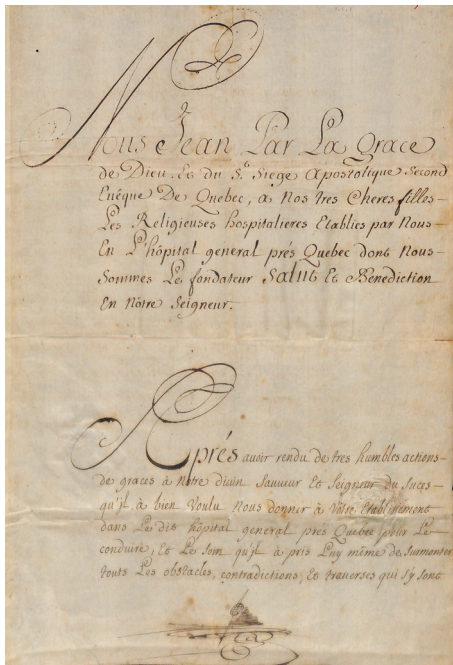 Nous Jean Par La grace
de Dieu, Et du St. Siege Apostolique Second
Evêque De Quebec, a Nos tres Cheres filles
Les Religieuses hospitalieres Etablies par Nous
En L'hôpital general prés Quebec dont Nous
Sommes Le fondateur Salut Et Benediction
En Nôtre Seigneur.
Aprés avoir rendu de tres humbles actions
de graces à Nôtre divin Sauveur Et Seigneur du Suces
qu'jl à bien voulu Nous donner à Vôtre Etablissement
dans Le dit hôpital general prés Quebec pour Le
conduire, Et Le Soin qu'jl à pris Luy même de Surmonter
touts Les obstacles, contradictions, Et traverses qui s'y sont